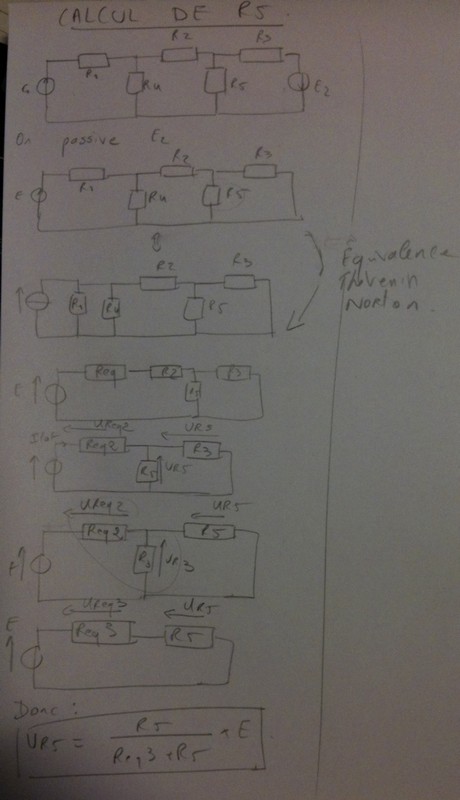 CALCUL DE R5.
R2 R3
R1 R4 R5 E2
On passive E2
R2 R3
E R1 R4 R5
Equivalence
Thevenin
Norton.
R2 R3
R1 R4 R5
E Req R2 R3
UReq2 UR3
Req2 R3
R5 UR5
UReq2 UR5
Req2 R5
R3 UR3
UReq3 UR5
E Req3 R5
Donc :
UR5 = R5 * E
Req3 + R5